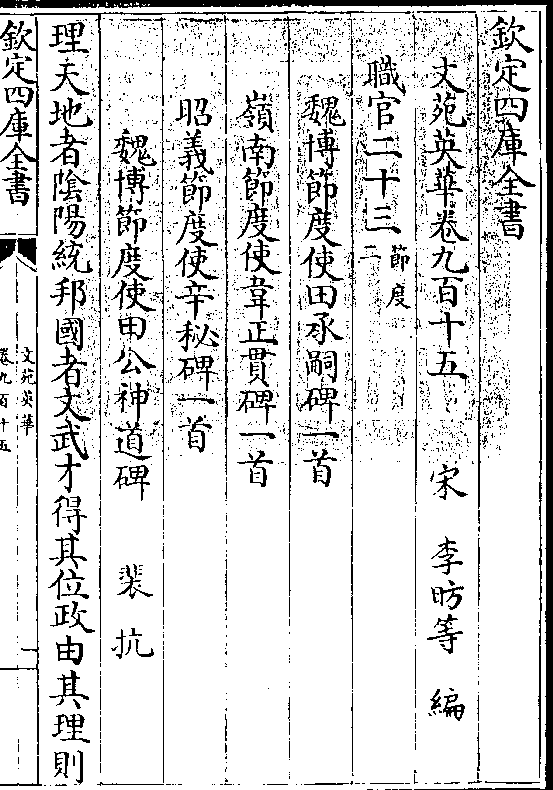 欽定四庫全書
文苑英華卷九百十五　宋　李昉等　編
職官二十三　節度二
魏博節度使田承嗣碑一首
嶺南節度使韋正貫碑一首
昭義節度使辛秘碑一首
魏博節度使田公神道碑　裴抗
理天地者陰陽統邦國者文武才得其位政由其理則
欽定四庫全書
文苑英華
卷九百十五
一